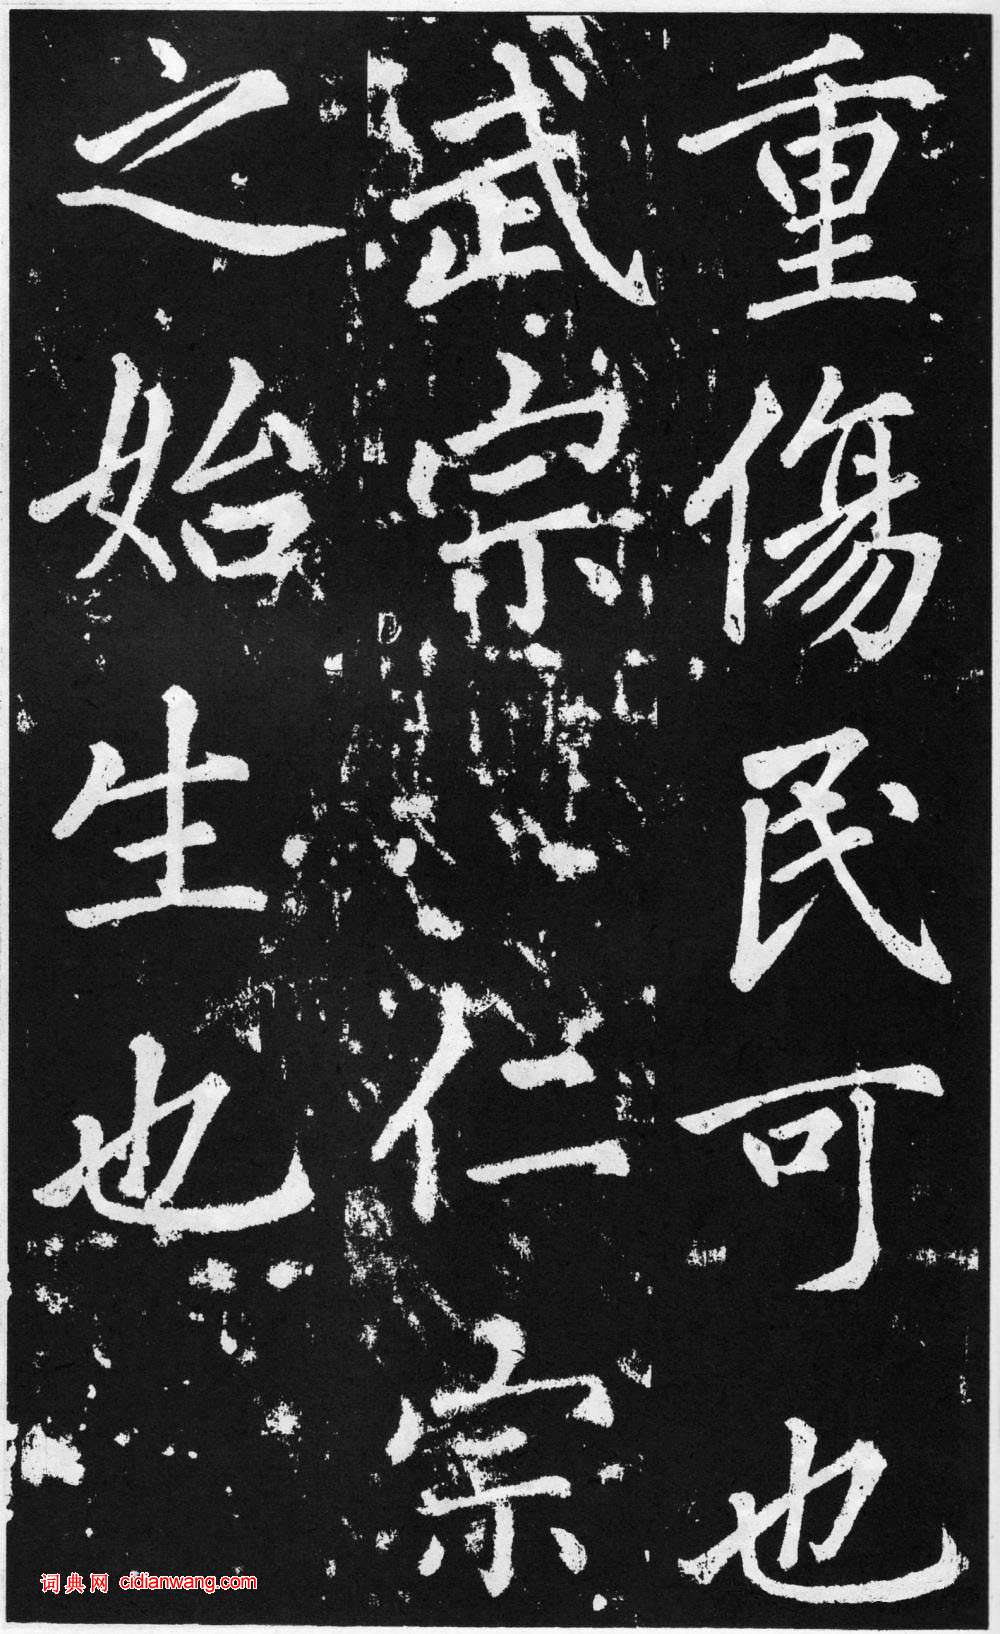 重傷民可也
武宗 仁宗
之始生也
词典网 cidianwang.com